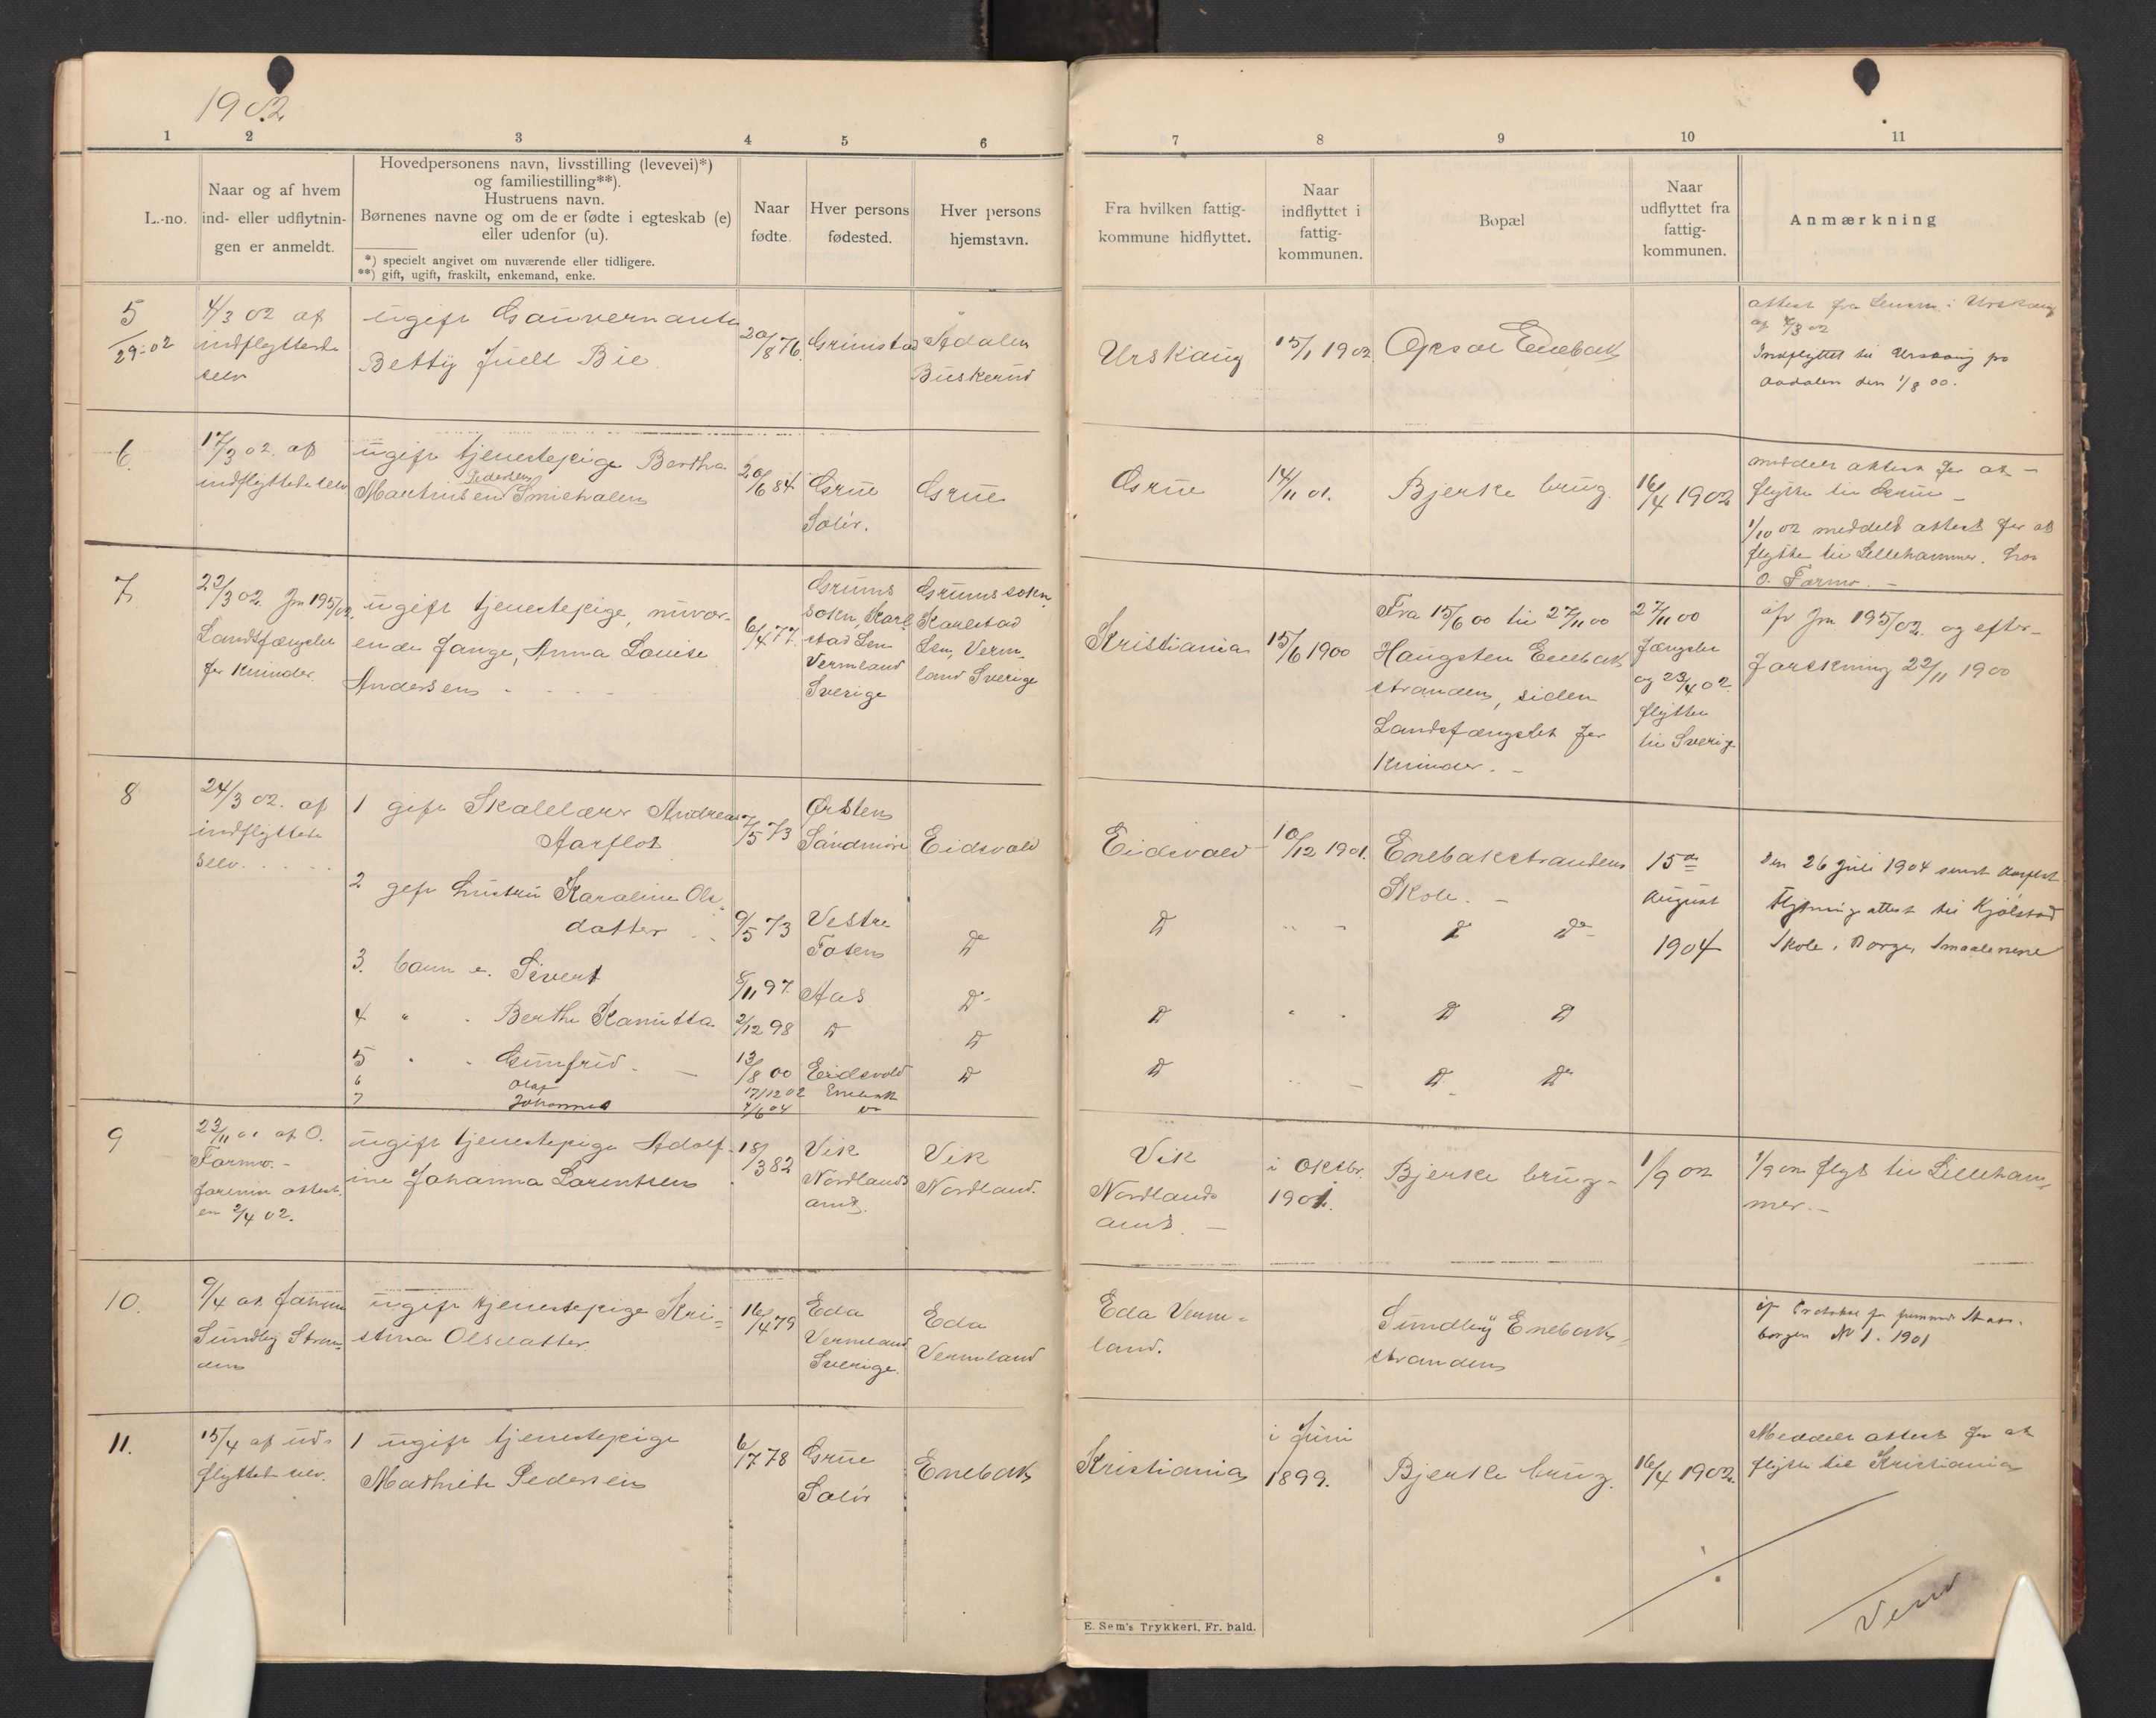 1902
1 2 3 4 5 6
L.-no.
Naar og af hvem
ind- eller udflytnin-
gen er anmeldt.
Hovedpersonens navn, livsstilling (levevei)*)
og familiestilling**).
Hustruens navn.
Børnenes navne og om de er fødte i egteskab (e)
eller udenfor (u).
*) specielt angivet om nuværende eller tidligere.
**) gift, ugift, fraskilt, enkemand, enke.
Naar
fødte.
Hver persons
fødested.
Hver persons
hjemstavn.
7 8 9 10 11
Fra hvilken fattig-
kommune hidflyttet.
Naar
indflyttet i
fattig-
kommunen.
Bopæl
Naar
udflyttet fra
fattig-
kommunen.
Anmærkning
5
/29-02
4/3 02 af
indflyttede
selv
ugift Gauvernante
Betty Juell Bie
20/8 76.
Grimstad
Ådalen
Buskerud
Urskaug
15/1 1902
Opsal Enebak
attest fra Lensm. i Urskaug
af 4/3 02
Indflyttet til Urskaug fra
Aadalen den 1/8 00.
6
17/3 02. af
indflyttede selv
ugift tjenestepige Bertha
Pedersen
Martinsen Smiehalen
20/6 84
Grue
Solør.
Grue
Grue
14/11 01.
Bjerke brug.
16/4 1902
meddelt attest for at
flytte til Grue
1/10 02 meddelt attest for at
flytte til Lillehammer. hos
O. Formo.
7
22/3 02. Jn 195/02.
Landsfængslet
for Kvinder.
ugift tjenestepige, nuvær-
ende fange, Anna Louise
Andersen
6/4 77.
Grums
sokn, Karl-
stad Len
Vermland
Sverige
Grums sokn,
Karlstad
Len, Verm-
land Sverige
Kristiania
15/6 1900
Fra 15/6 00 til 27/11 00
Haugsten Enebak
stranden, siden
Landsfængslet for
Kvinder.
27/11 00
Fængslet
og 23/4 02
flyttet
til Sverig
af Jn 195/02. og efter-
forskning 22/11 1900
8
24/3 02. af
indflyttede
selv.
1 gift Skolelærer Andreas
Aarflot
7/5 73
Ørsten
Søndmøre
Eidsvold
Eidsvold
10/12 1901.
Enebakstranden
Skole.
15de
August
1904
Den 26 Juli 1904 sendt Aarflot
Flytningsattest til Kjølstad
Skole i Borge, Smaalenene
2 gift hustru Karoline Ols-
datter
9/5 73
Vestre
Toten
Do
Do
Do Do
3. barn e. Sivert
8/11 97.
Aas
Do
4 " Berthe Kanutta
2/12 98
Do
Do
Do
" Do Do
5 Gunfrid
13/8 00
Eidsvold
Do
Do
Do Do
6 Olaf
17/12 02 Enebak
7 Johannes
7/6 04 Do
9
23/11 01 af O.
Formo.
en 2/4 02.
ugift tjenestepige Adolf-
ine Johanna Lorentsen
18/3 82
Vik
Nordlands
amt.
Vik
Nordland.
Vik
Nordlands
amt.
i Oktbr.
1901.
Bjerke brug
1/9 02
1/9 02 flyt til Lilleham-
mer.
10.
9/4 af Johan
Sundby Stran-
den
ugift tjenestepige Kri-
stina Olsdatter
16/4 79
Eda
Vermland
Sverige.
Eda
Vermland
Eda Verm-
land.
Sundby Enebak-
stranden
No 1. 1901
11.
15/4 af ud-
flyttede selv.
1 ugift tjenestepige
Mathilde Pedersen
6/1 78
Grue
Solør
Enebak
Kristiania
i Juni
1899.
Bjerke brug.
16/4 1902.
Meddelt attest for at
flytte til Kristiania
Vend
E. Sem's Trykkeri, Fr. hald.